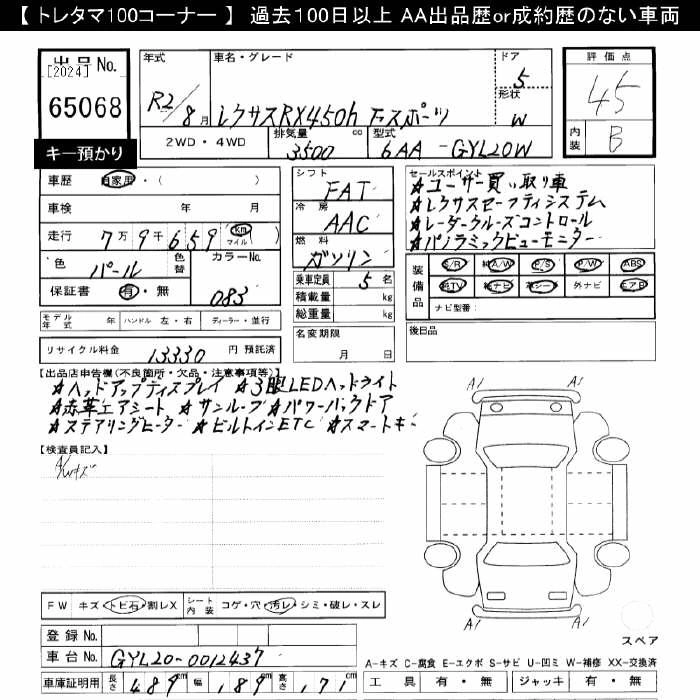 【 トレタマ100コーナー 】 過去100日以上 AA出品歴or成約歴のない車両
出品 No.
[2024]
65068
キー預かり
年式
R2/8月
車名・グレード
レクサスRX450h Fスポーツ
ドア
5
形状
W
評価点
45
内装
B
2WD・4WD
排気量
3500 cc
型式
6AA-GYL20W
車歴 自家用・( )
車検 年 月
走行 7万9千659 (km マイル)( )
色 パール
色替
カラーNo.
083
保証書 有・無
シフト
FAT
冷房
AAC
燃料
ガソリン
乗車定員 5 名
積載量 kg
総重量 kg
セールスポイント
★ユーザー買い取り車
★レクサスセーフティシステム
★レーダークルーズコントロール
★パノラミックビューモニター
装備品
S/R 純A/W P/S P/W ABS
純TV 純ナビ 革シート 外ナビ エアB
ナビ型番:
モデル年式 年 ハンドル 左・右 ディーラー・並行
名変期限
月 日
後日品
リサイクル料金 13330 円 預託済
【出品店申告欄(不良箇所・欠品・注意事項等)】
★ヘッドアップディスプレイ ★3眼LEDヘッドライト
★赤革エアシート ★サンルーフ ★パワーバックドア
★ステアリングヒーター ★ビルトインETC ★スマートキー
【検査員記入】
A1 A1
A1 A1
FW キズ・トビ石・割レX シート内装 コゲ・穴・汚レ・シミ・破レ・スレ
登録 No.
車台 No. GYL20-0012437
車庫証明用 長さ 489 幅 189 高さ 171
スペア
A-キズ C-腐食 E-エクボ S-サビ U-凹ミ W-補修 XX-交換済
工具 有・無 ジャッキ 有・無